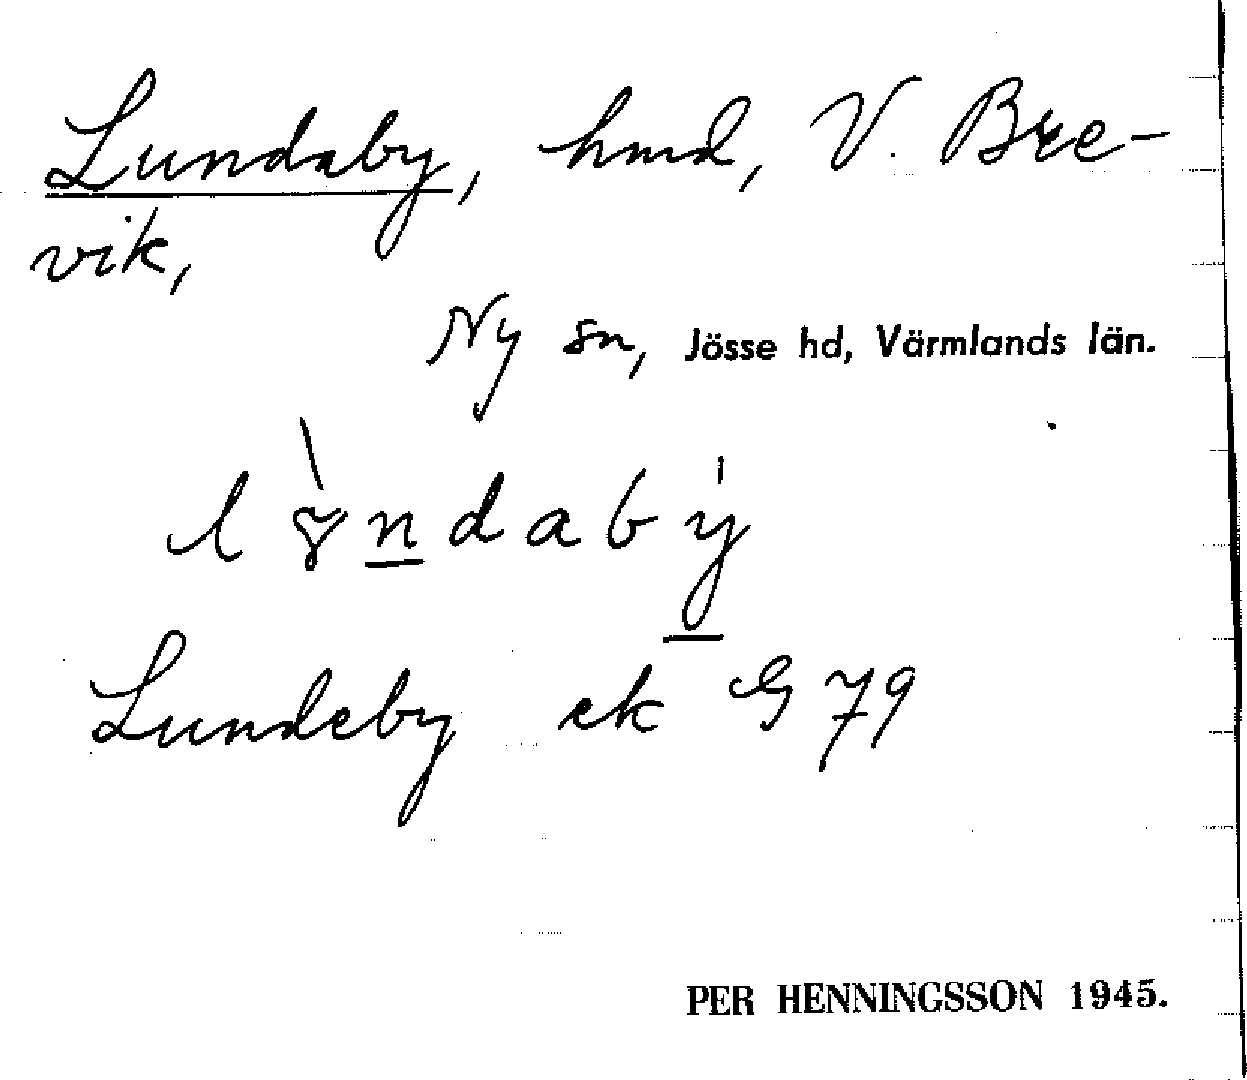 Lundaby, hmd, V. Bre-
vik,
Ny sn, Jösse hd, Värmlands län.
Lundeby ek G 79
PER HENNINGSSON 1945.